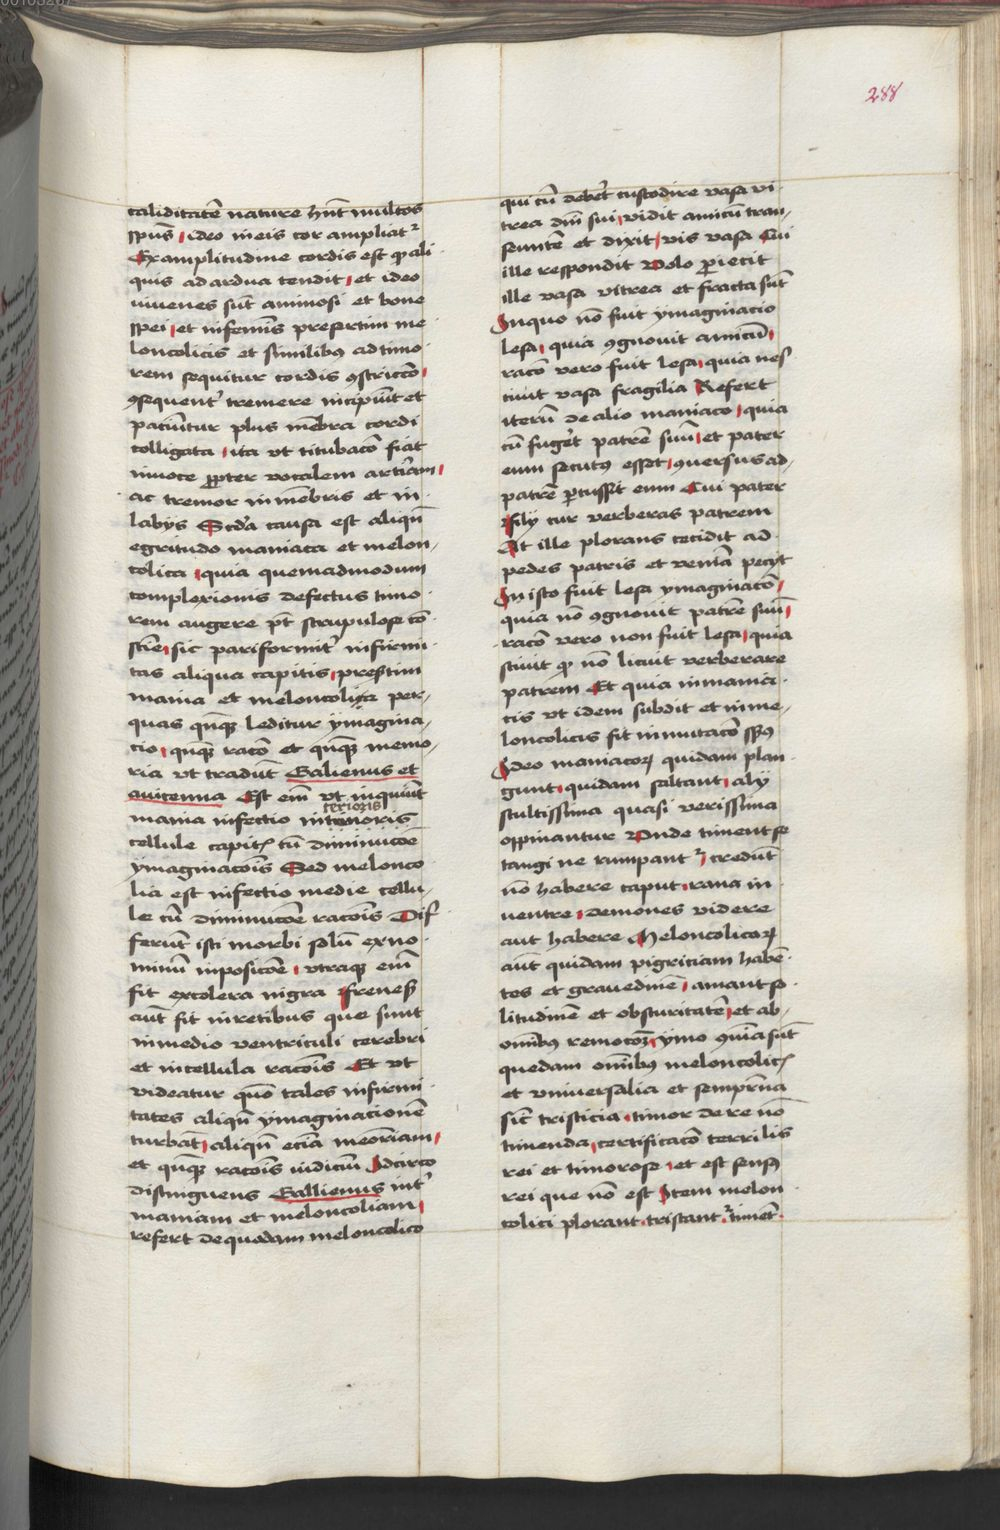 288
caliditatē nature hn̄t multos
sp̄us ideo in eis cor ampliat᷑
Ex amplitudine cordis est qꝫ ali
quis ad ardua tendit et ideo
iuvenes sūt animosi et bone
spei et infirmis presertim me
loncolicis et similibꝰ ad timo
rem sequitur cordis ꝯstricc̄o
ꝯsequent᷑ tremere incipiūt et
paciūtur plus mēbra cordi
colligata ita vt titubac̄o fiat
in voce ꝓpter vocalem arteriam
ac tremor in mēbris et in
labijs Scd̄a causa est aliqn̄
egritudo maniaca et melon
colica quia quemadmodum
complexionis defectus timo
rem augere pōt scrupulose cō
scīe sic pariformit᷑ infirmi
tas aliqua capitis presertim
mania et meloncolica per
quas qn̄qꝫ leditur ymagina
cio qn̄qꝫ rac̄o et qn̄qꝫ memo
ria vt tradūt Galienus et
auicenna Est em̄ vt inquiūt
terioris
mania infectio intenoris
cellule capitꝭ cū diminuc̄oe
ymaginac̄ois Sed melonco
lia est infectio medie cellu
le cū diminuc̄oe rac̄ois Dif
ferūt isti morbi solū ex no
minū inposic̄oe vtraqꝫ em̄
fit ex colera nigra frenesis
aūt fit in retibus que sunt
in medio ventriculi cerebri
et in cellula rac̄ois Et vt
videatur quō tales infirmi
tates aliqn̄ ymaginacionē
turbāt aliqn̄ eciā meōriam
et qn̄qꝫ rac̄ois iudiciū Idcirco
distinguens Gallienus int᷑
maniam et meloncoliam
refert de quodam meloncolico
qui cū deber̄t custodire vasa vi
trea dn̄i sui vidit amicū tran
seuntē et dixit vis vasa Cui
ille respondit Volo ꝓiecit
ille vasa vitrea et fracta sūt
In quo nō fuit ymaginacio
lesa quia ꝯgnouit amicū
rac̄o vero fuit lesa quia nes
ciuit vasa fragilia Refert
iterū de alio maniaco quia
cū fuger̄t patrē suū et pater
eum secutꝰ esset ꝯuersus ad
patrē ꝑcussit eum Cui pater
fily cur verberas patrem
At ille plorans cecidit ad
pedes patris et veniā pecijt
In isto fuit lesa ymaginac̄o
quia nō ꝯgnouit patrē suū
rac̄o vero non fuit lesa quia
sciuit qꝫ nō licuit verberare
patrem Et quia in mania
cis vt idem subdit et in me
loncolicis fit inmutac̄o sp̄us
Ideo maniacoꝝ quidam plan
gunt quidam saltant aly
stultissima quasi verissima
oppinantur Vnde timent se
tangi ne rumpant᷑ credūt
nō habere caput rana in
ventre demones videre
aut habere Meloncolicoꝝ
aūt quidam pigriciam habē
tes et gravedinē amant so
litudinē et obscuritatē et ab
omībus remoc̄oꝫ ymo ꝯuīa sūt
quedam omībus meloncolicꝭ
et vniversalia et semprīna
sic̄ tristicia timor de re nō
timenda certificac̄o terrilis
rei et timorose et est sensꝰ
rei que nō est Item melon
colici plorant tristant᷑ timēt